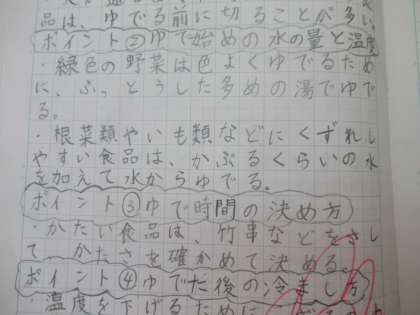 品は、ゆでる前に切ることが多い。
ポイント②ゆで始めの水の量と温度
・緑色の野菜は色よくゆでるため
に、ふっとうした多めの湯でゆで
る。
・根菜類やいも類などにくずれし
やすい食品は、かぶるくらいの水
を加えて水からゆでる。
ポイント③ゆで時間の決め方
・かたい食品は、竹串などをさし
て かたさを確かめて決める。
ポイント④ゆでた後の冷まし方
・温度を下げるために